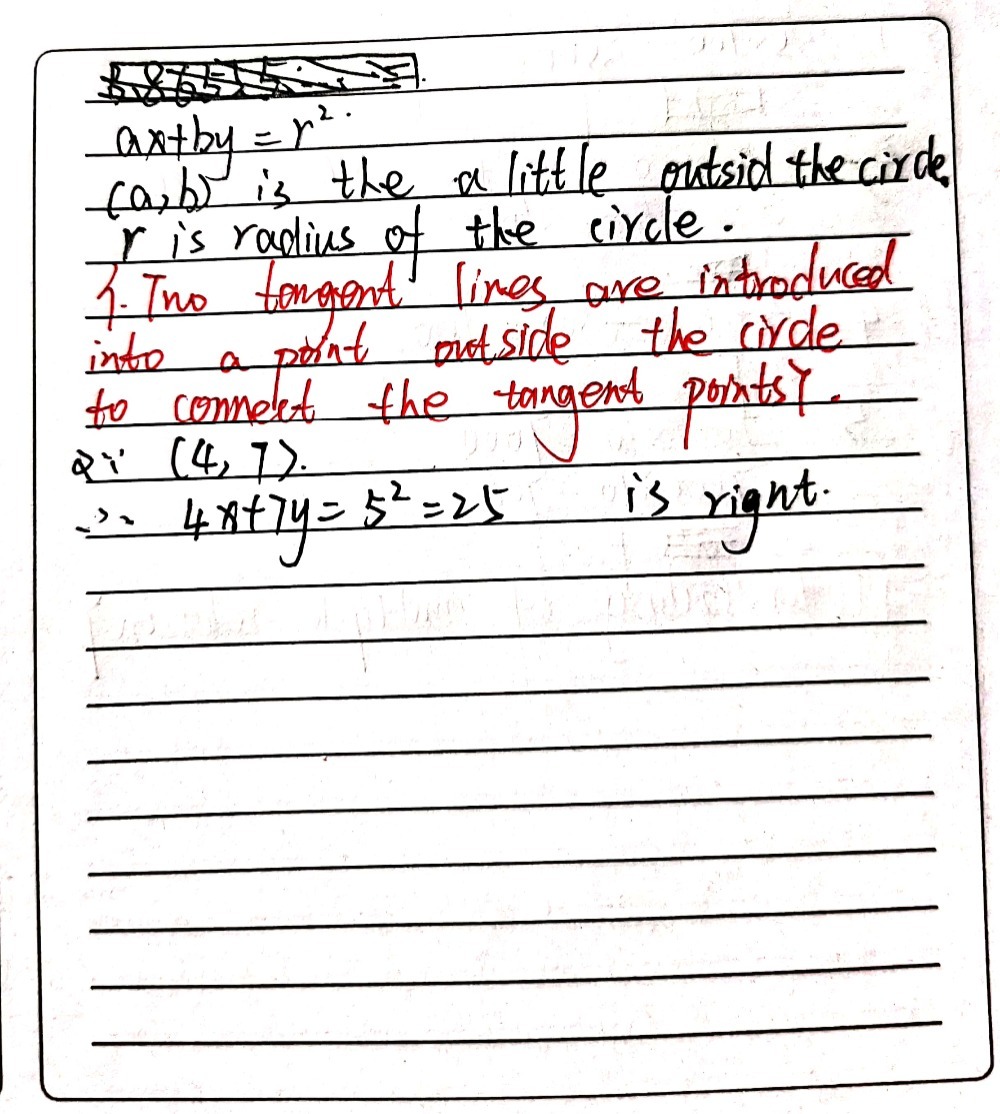 ax+by = r².
(a,b) is the a little outsid the circle,
r is radius of the circle.
{. Two tangent lines are introduced
into a point outside the circle
to connect the tangent points}.
(4, 7).
∴ 4x+7y = 5² = 25 is right.